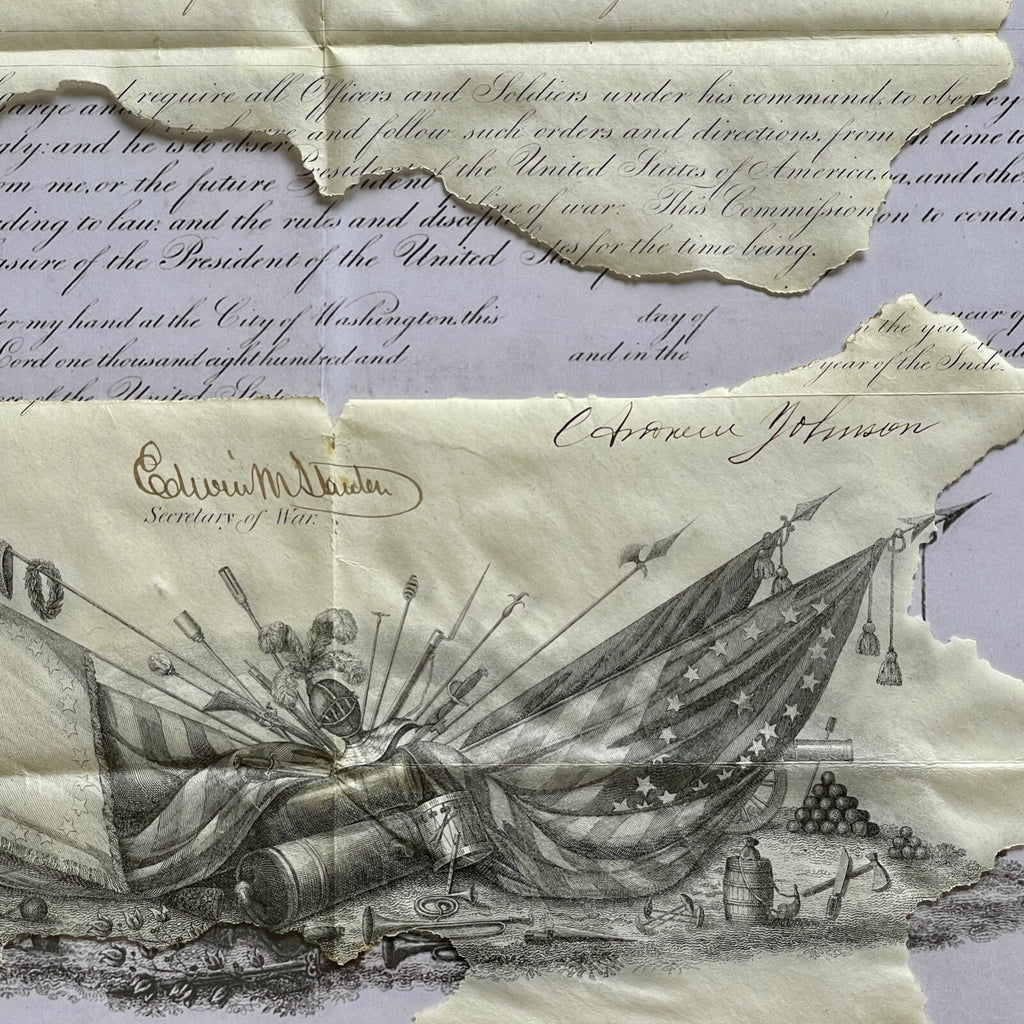 and require all Officers and Soldiers under his command, to obey
gly: and he is to observe and follow such orders and directions, from time to
me, or the future President of the United States of America, and othe
ding to law: and the rules and discipline of war: This Commission to conti
asure of the President of the United States for the time being.
er my hand at the City of Washington, this day of in the year of
Lord one thousand eight hundred and and in the year of the Inde
of the United States
Andrew Johnson
Edwin M Stanton
Secretary of War.